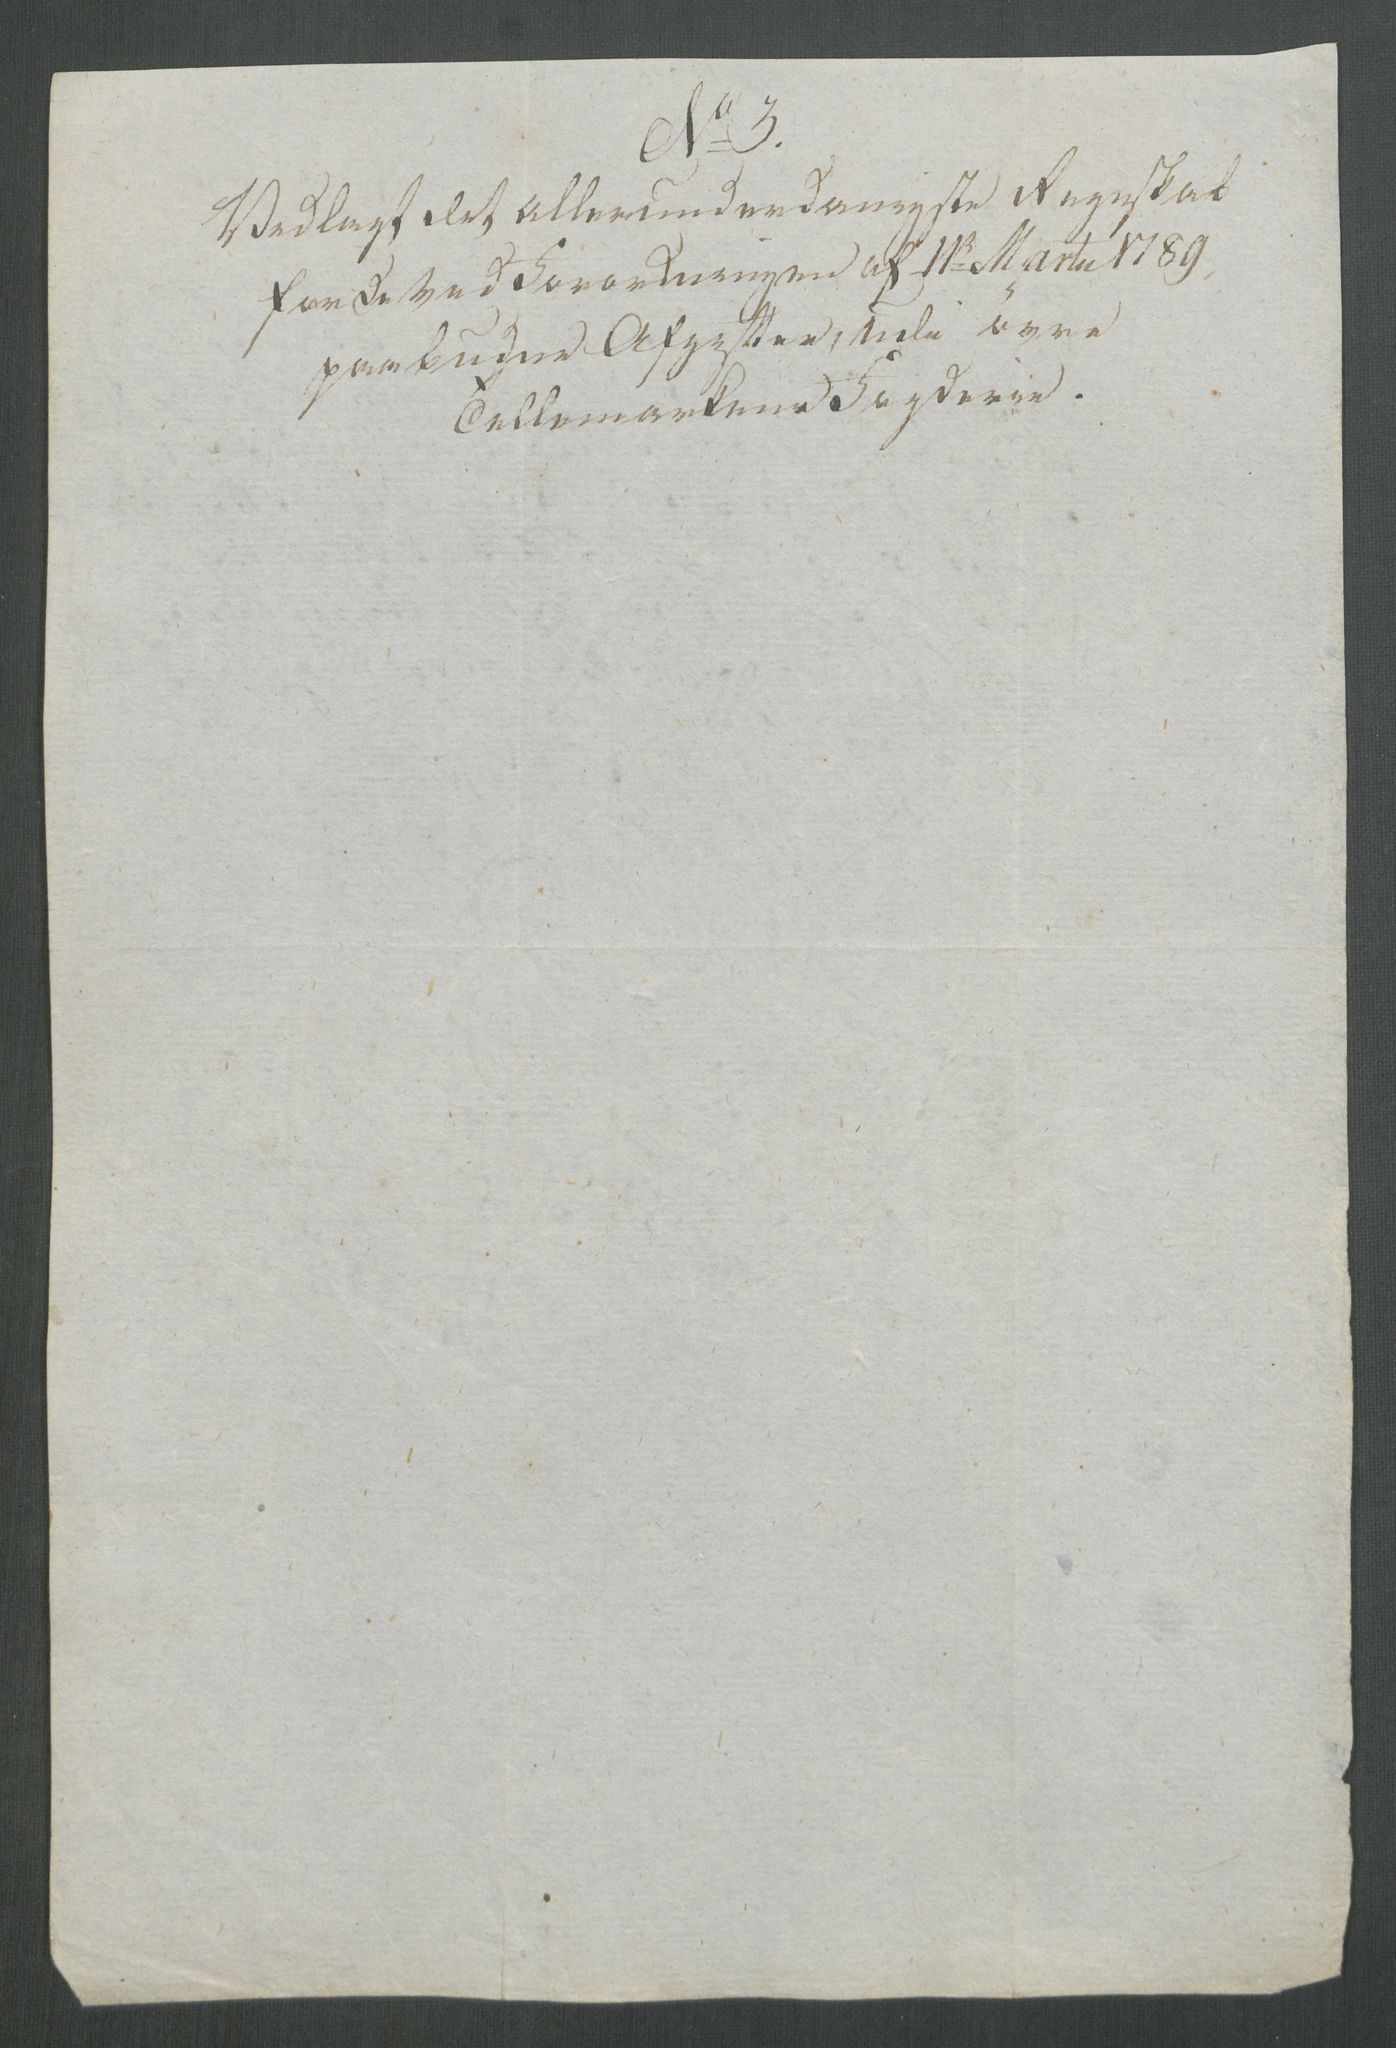 No 3.
Vedlagt det allerunderdanigste Regnskab
for de ved Forordningen af 11te Martii 1789
paabudne Afgifter, udi övre
Tellemarkens Fogderie.